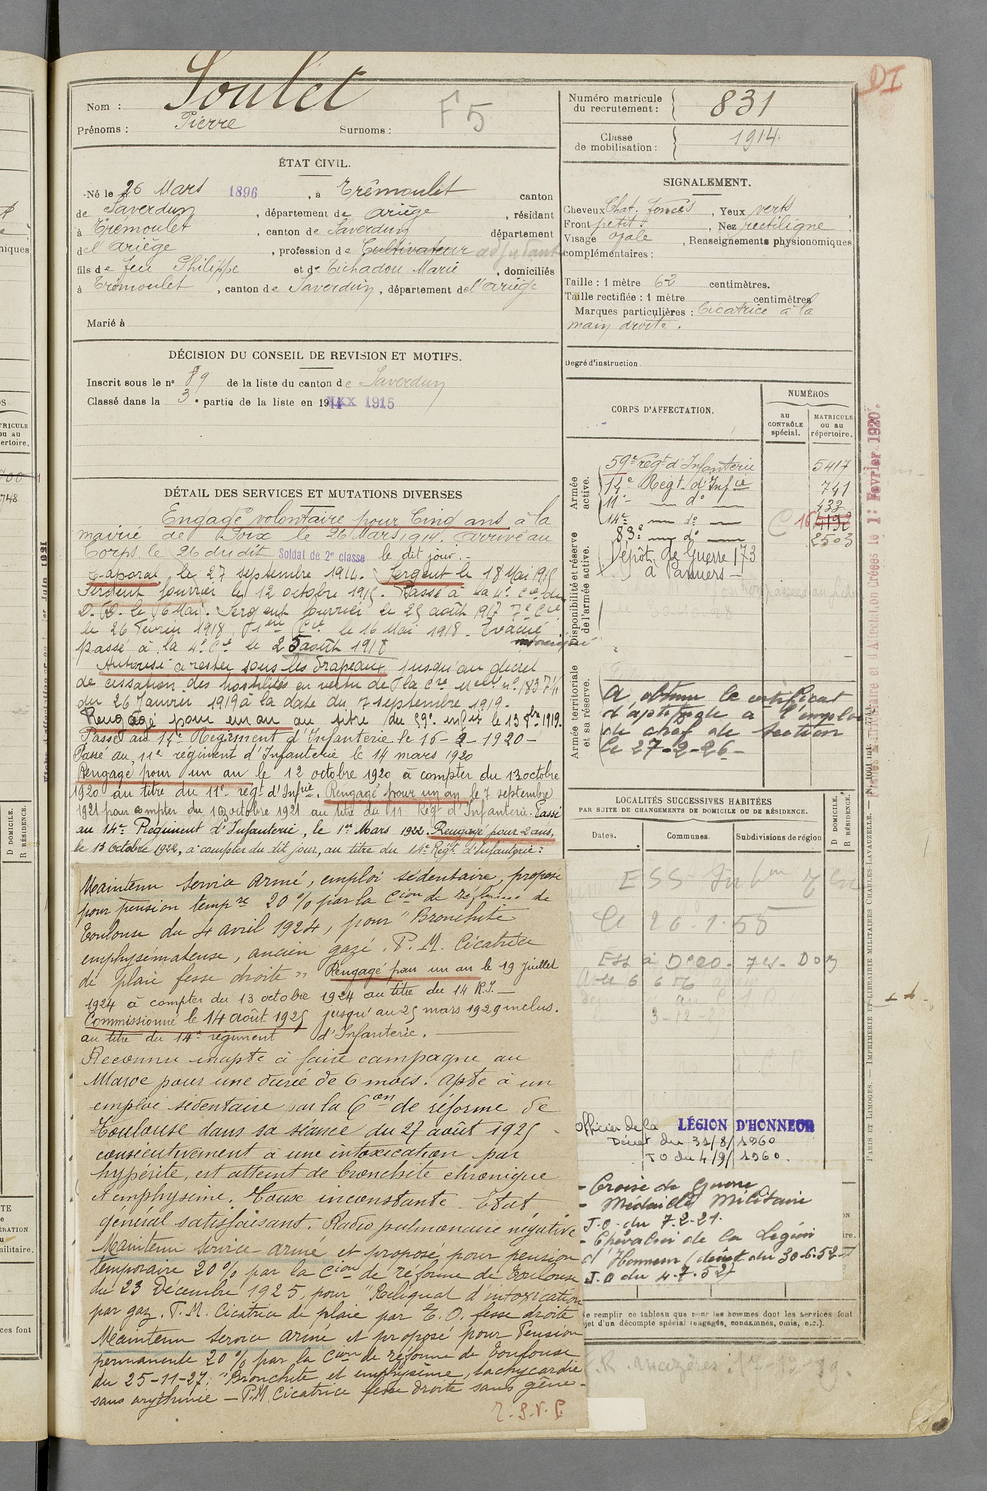 Nom : Soulet
Prénoms : Pierre Surnoms : F5
ÉTAT CIVIL.
Né le 26 Mars 1896, à Trémoulet canton
de Saverdun, département de Ariège, résidant
à Trémoulet, canton de Saverdun département
de l'Ariège, profession de Cultivateur adjudant
fils de feu Philippe et de Cichadou Marie, domiciliés
à Trémoulet, canton de Saverdun, département de l'Ariège
Marié à
DÉCISION DU CONSEIL DE REVISION ET MOTIFS.
Inscrit sous le n° 89 de la liste du canton de Saverdun
Classé dans la 3e partie de la liste en 1915
DÉTAIL DES SERVICES ET MUTATIONS DIVERSES
Engagé volontaire pour Cinq ans à la
mairie de Foix le 26 Mars 1914. Arrivé au
Corps le 26 du dit Soldat de 2e classe le dit jour.-
Caporal le 27 septembre 1914. Sergent le 18 Mai 1915
Sergent fourrier le 12 octobre 1915. Passé à la 4e Cie du
D.D. le 6 Mai. Sergent fourrier le 25 août 1917 7e Cie
le 26 Février 1918 le 16 Mai 1918. Evacué
passé à la 4e Cie le 25 août 1918
Autorisé à rester sous les drapeaux jusqu'au décret
de cessation des hostilités en vertu de la Cre Mlle n° 1837 1/11
du 26 Janvier 1919 à la date du 7 septembre 1919.
Rengagé pour un an au titre du 59e infrie le 13 8bre 1919.
Passé au 14e Régiment d'Infanterie le 16-2-1920-
Passé au 11e régiment d'Infanterie le 14 mars 1920
Rengagé pour un an le 12 octobre 1920 à compter du 13 octobre
1920 au titre du 11e régt d'Infrie. Rengagé pour un an le 7 septembre
1921 pour compter du 13 octobre 1921 au titre du 11 Régt d'Infanterie. Passé
au 14e Régiment d'Infanterie, le 1er Mars 1922. Rengagé pour 2 ans,
le 13 Octobre 1922, à compter du dit jour, au titre du 14e Régt d'Infanterie :
Maintenu service armé, emploi sédentaire, proposé
pour pension tempre 20% par la Cion de réforme de
Toulouse du 4 avril 1924, pour "Bronchite
emphysémateuse, ancien gazé. P.M. Cicatrice
de plaie fesse droite" Rengagé pour un an le 19 juillet
1924 à compter du 13 octobre 1924 au titre du 14 R.I. -
Commissionné le 14 août 1925 jusqu'au 25 mars 1929 inclus.
au titre du 14e régiment d'Infanterie. -
Reconnu inapte à faire campagne au
Maroc pour une durée de 6 mois. Apte à un
emploi sédentaire par la Con de réforme de
Toulouse dans sa séance du 27 août 1925 -
consécutivement à une intoxication par
hypérite, est atteint de bronchite chronique
et emphysème. Toux inconstante. Etat
général satisfaisant. Radio pulmonaire négative
Maintenu service armé et proposé pour pension
temporaire 20% par la Cion de réforme de Toulouse
du 23 Décembre 1925, pour "Reliquat d'intoxication
par gaz. P.M. Cicatrice de plaie par E.O. fesse droite
Maintenu service armé et proposé pour Pension
permanente 20% par la Cion de réforme de Toulouse
du 25-11-27. "Bronchite et emphysème, tachycardie
sans arythmie - P.M. Cicatrice fesse droite sans gêne -
T.S.V.P.
DI
Numéro matricule du recrutement : 831
Classe de mobilisation : 1914
SIGNALEMENT.
Cheveux Chat. foncés, Yeux verts
Front petit, Nez rectiligne
Visage ovale, Renseignements physionomiques
complémentaires :
Taille : 1 mètre 62 centimètres.
Taille rectifiée : 1 mètre centimètres
Marques particulières : Cicatrice à la
main droite.
Degré d'instruction.
CORPS D'AFFECTATION.
NUMÉROS
AU CONTRÔLE spécial.
MATRICULE ou au répertoire.
Armée active.
59e Régt d'Infanterie 5417
14e Regt d'Infie 741
11e - do 433
14e - do - C 16 4192
83e - do - 2503
Disponibilité et réserve de l'armée active.
Dépôt de Guerre 173
à Pamiers -
Armée territoriale et sa réserve.
A obtenu le certificat
d'aptitude à l'emploi
de chef de section
le 27-2-26-
LOCALITÉS SUCCESSIVES HABITÉES
PAR SUITE DE CHANGEMENTS DE DOMICILE OU DE RÉSIDENCE.
Dates. Communes. Subdivisions de région D DOMICILE. R RÉSIDENCE.
Le 26.1.58
3-12-
Officier de la LÉGION D'HONNEUR
Décret du 31/8/1960
JO du 4/9/1960.
- Croix de Guerre
- Médaille Militaire
J.O. du 7.2.21.
- Chevalier de la Légion
d'Honneur (décret du 30-6-52-
J.O du 4.7.52)
PARIS ET LIMOGES. — IMPRIMERIE ET LIBRAIRIE MILITAIRES CHARLES-LAVAUZELLE.